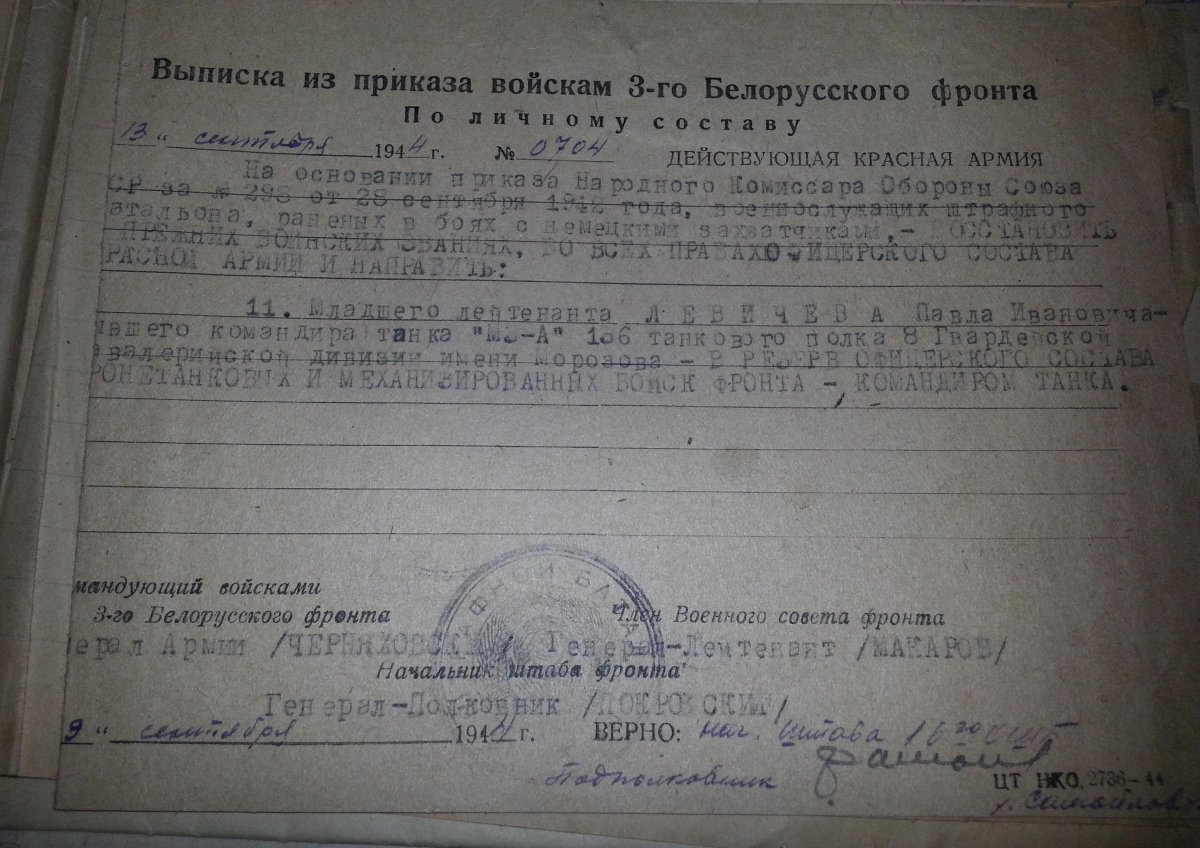 Выписка из приказа войскам 3-го Белорусского фронта
По личному составу
13 " сентября 1944 г. № 0704 ДЕЙСТВУЮЩАЯ КРАСНАЯ АРМИЯ
На основании приказа Народного Комиссара Обороны Союза
СР за № 298 от 28 сентября 1942 года, военнослужащих штрафного
атальона, раненых в боях с немецкими захватчиками,- ВОССТАНОВИТЬ
ПРЕЖНИХ ВОИНСКИХ ЗВАНИЯХ, ВО ВСЕХ ПРАВАХ ОФИЦЕРСКОГО СОСТАВА
РАСНОЙ АРМИИ И НАПРАВИТЬ:
11. Младшего лейтенанта ЛЕВИЧЕВА Павла Ивановича-
ывшего командира танка "М3-А" 136 танкового полка 8 Гвардейской
авалерийской дивизии имени Морозова - В РЕЗЕРВ ОФИЦЕРСКОГО СОСТАВА
РОНЕТАНКОВЫХ И МЕХАНИЗИРОВАННЫХ ВОЙСК ФРОНТА -, КОМАНДИРОМ ТАНКА.
мандующий войсками
3-го Белорусского фронта Член Военного совета фронта
ерал Армии /ЧЕРНЯХОВСК / Генерал-Лейтенант /МАКАРОВ/
Начальник штаба фронта
Генерал-Полковник /ПОКРОВСКИЙ/
9 " сентября 1944 г. ВЕРНО: нач. штаба 16
Подполковник
ЦТ НКО, 2736-44